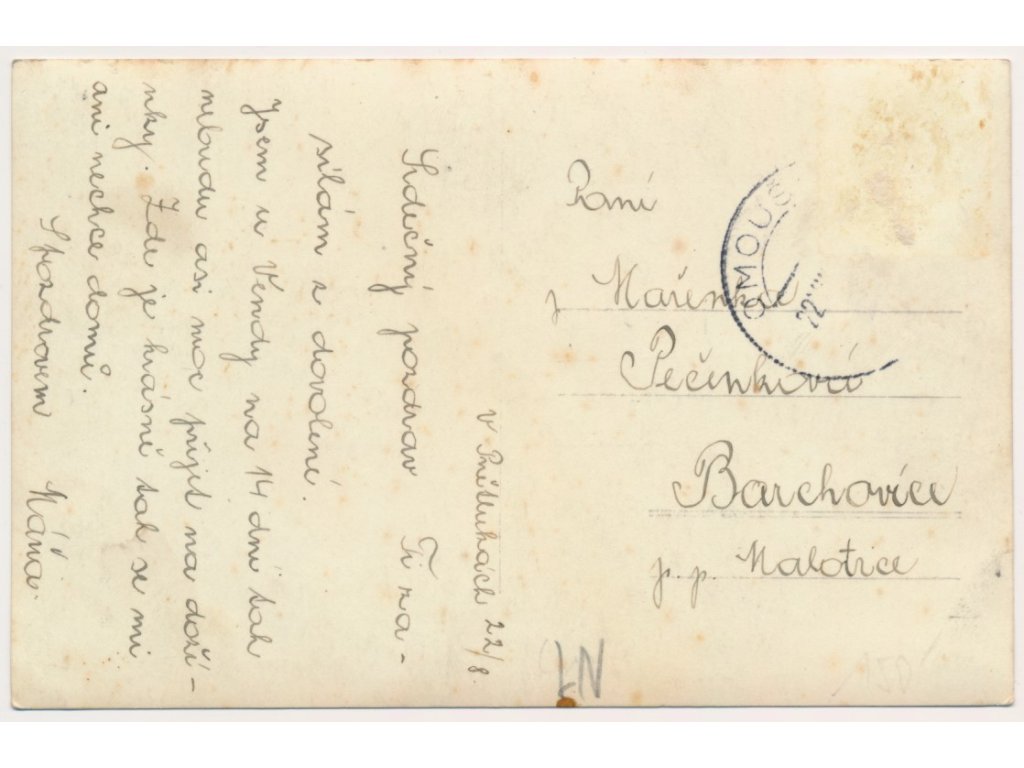 V Průtluhách 22/8.
Srdečný pozdrav Ti za-
sílám z dovolené.
Jsem u Vendy na 14 dní tak
nebudu asi moc přijet na doží-
nky. Zde je krásně tak se mi
ani nechce domů.
S pozdravem Máňa.
Paní
Mařenka
Pečenková
Barchovice
p. p. Malotice
OMOUŠ
22
LN